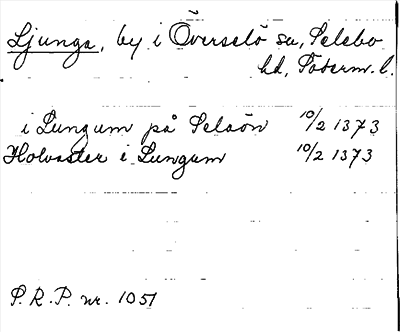 Ljunga, by i Överselö sn, Selebo
hd, Söderm. l.
i Lungum på Selaön 10/2 1373
Holvaster i Lungum 10/2 1373
P. R. P. nr. 1051